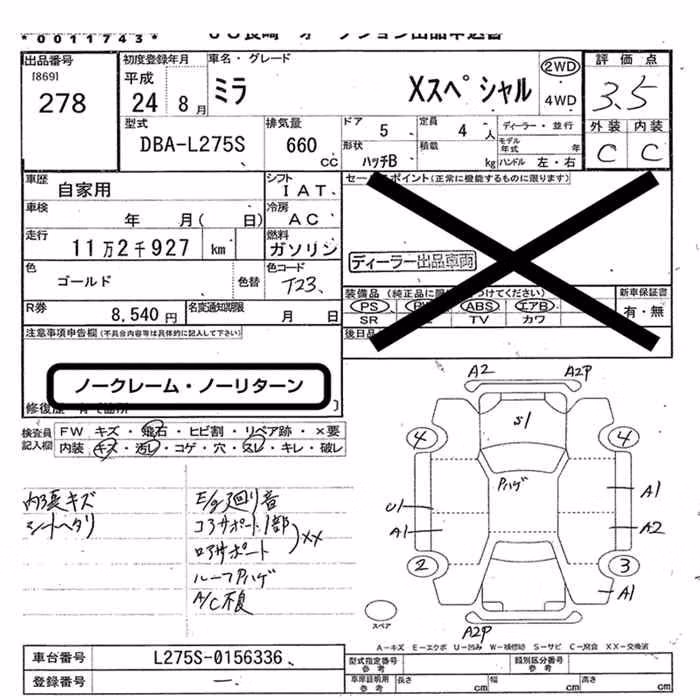 *0011743*
出品番号
[869]
278
初度登録年月
平成
24 8月
車名・グレード
ミラ Xスペシャル
2WD
・
4WD
評価点
3.5
型式
DBA-L275S
排気量
660 cc
ドア
5
定員
4 人
ディーラー・並行
モデル年式 年
外装 内装
C C
形状
ハッチB
積載
kg
ハンドル 左・右
車歴
自家用
シフト
IAT
セールスポイント(正常に機能するものに限ります)
車検
年 月( 日)
冷房
AC
走行
11万2千927 km
燃料
ガソリン
ディーラー出品車両
色
ゴールド
色替
色コード
T23
装備品
新車保証書
有・無
PS ABS エアB
SR TV カワ
R券
8,540円
名変通知期限
月 日
後日品
注意事項申告欄(不具合内容等は具体的に記入して下さい)
ノークレーム・ノーリターン
検査員記入欄
FW キズ・飛石・ヒビ割・リペア跡・×要
内装 キズ・汚レ・コゲ・穴・スレ・キレ・破レ
内張キズ
シートヘタリ
E/g廻り音
コアサポート1部
ロアサポート
XX
ルーフPハゲ
A/C不良
A2
A2P
S1
4
4
Pハゲ
U1
A1
A1
A2
2
3
A1
A2P
スペア
A-キズ E-エクボ U-凹み W-補修跡 S-サビ C-腐食 XX-交換済
車台番号
L275S-0156336
型式指定番号
参考
類別区分番号
参考
登録番号
車庫証明用
参考
長さ cm
幅 cm
高さ cm